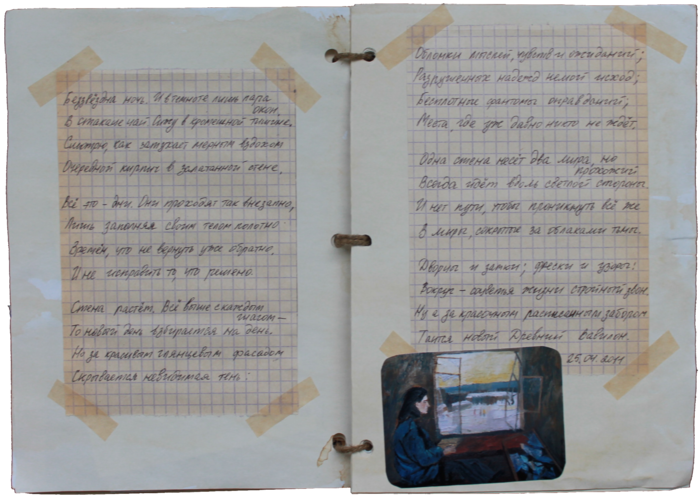 Беззвёздна ночь. И в темноте лишь пара
окон.
В стакане чай. Сижу в кромешной тишине.
Смотрю, как затухает мерным вздохом
Очередной кирпич в залатанной стене.
Всё это – дни. Они проходят так внезапно,
Лишь заполняя своим телом полотно
Времён, что не вернуть уже обратно,
И не исправить то, что решено.
Стена растёт. Всё выше с каждым
часом –
То новый день взбирается на день.
Но за красивым глянцевым фасадом
Скрывается невидимая тень:
Обломки мыслей, чувств и ожиданий;
Разрушенных надежд немой исход;
Бесплотные фантомы оправданий;
Места, где уж давно никто не ждёт.
Одна стена несёт два мира, но
прохожий
Всегда идёт вдоль светлой стороны.
И нет пути, чтобы проникнуть всё же
В миры, сокрытые за облаками тьмы.
Дворцы и замки; фрески и узоры:
Вокруг – созвучья жизни стройный звон.
Ну а за красочным расписанным забором
Таится новый Древний Вавилон.
25.04.2011